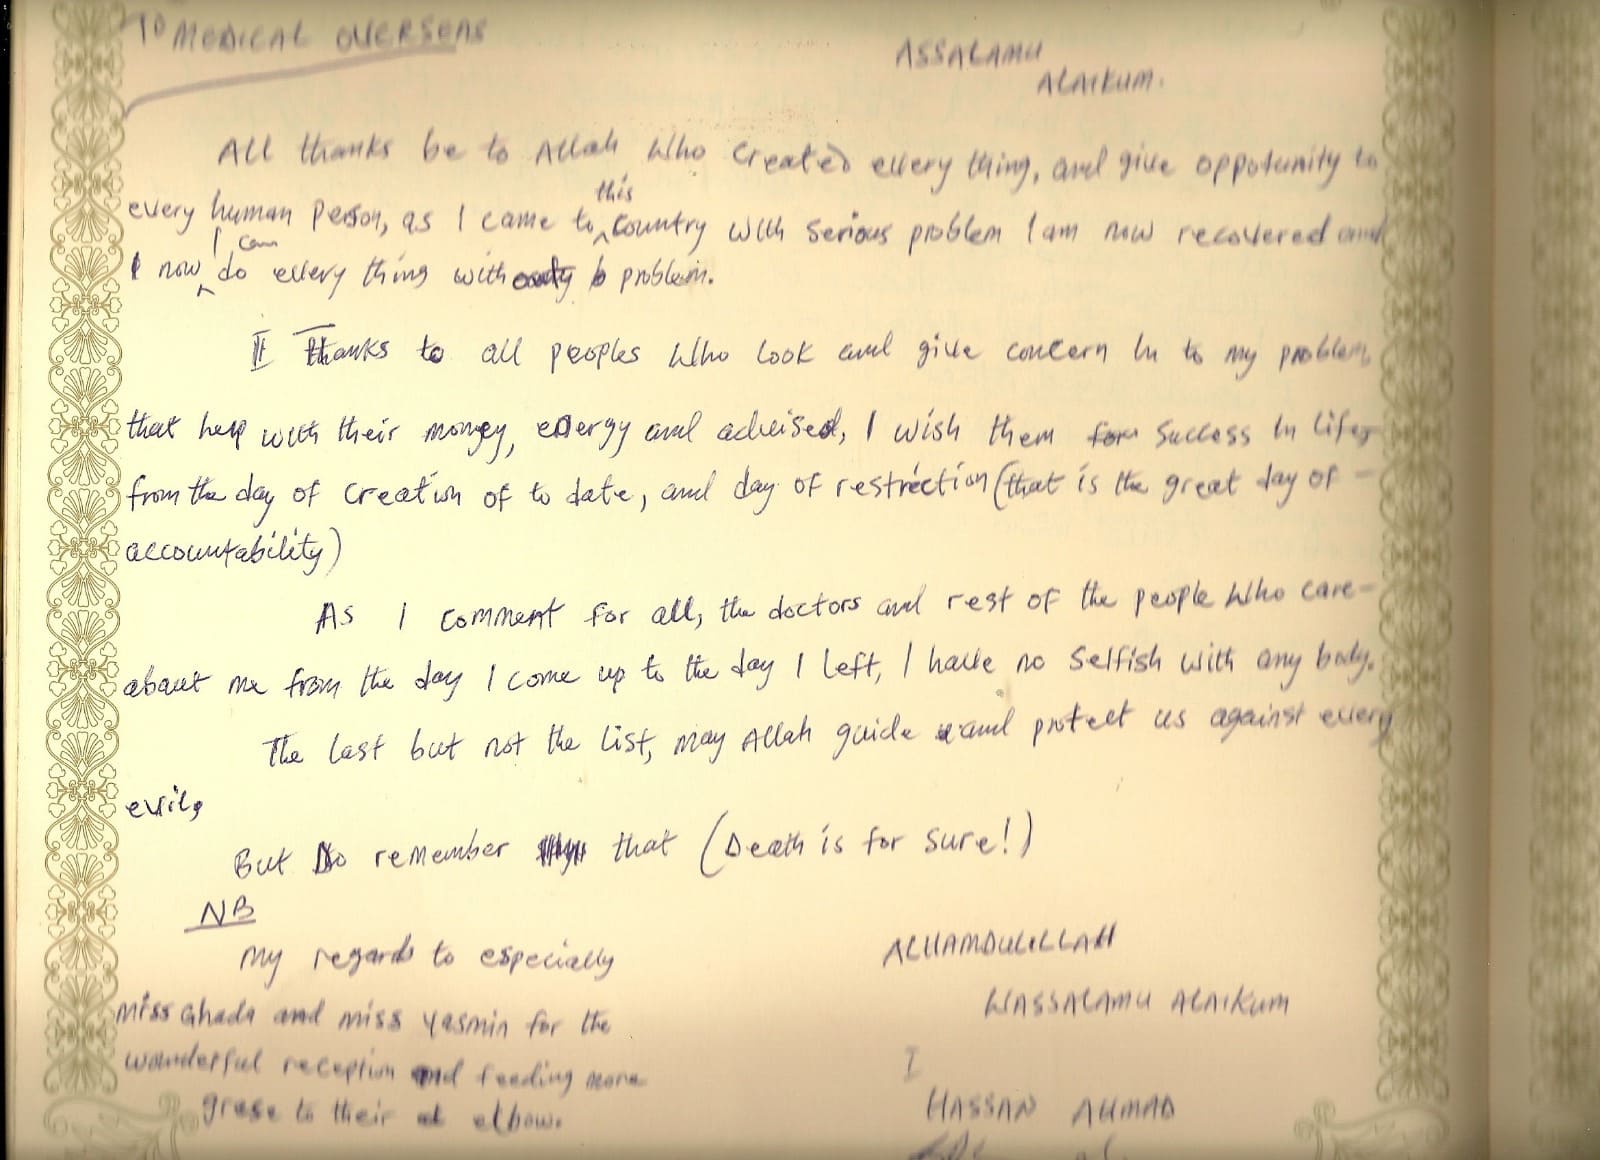 TO MEDICAL OVERSEAS
ASSALAMU
ALAIKUM.
All thanks be to Allah Who created every thing, and give oppotunity to
every human Person, as I came to this country with serious problem I am now recovered and
I now I can do every thing with problem.
I Thanks to all peoples Who look and give concern In to my problem,
that help with their money, energy and advised, I wish them for Success In life,
from the day of creation of to date, and day of restriction (that is the great day of -
accountability)
As I comment for all, the doctors and rest of the people Who care-
about me from the day I come up to the day I left, I have no Selfish with any body.
The last but not the list, may Allah guide and protect us against every
evil,
But Do remember that (Death is for sure!)
NB
My regards to especially
miss Ghada and miss Yasmin for the
wonderful reception and feeding more
grese to their elbow.
ALHAMDULILLAH
WASSALAMU ALAIKUM
I
HASSAN AHMAD